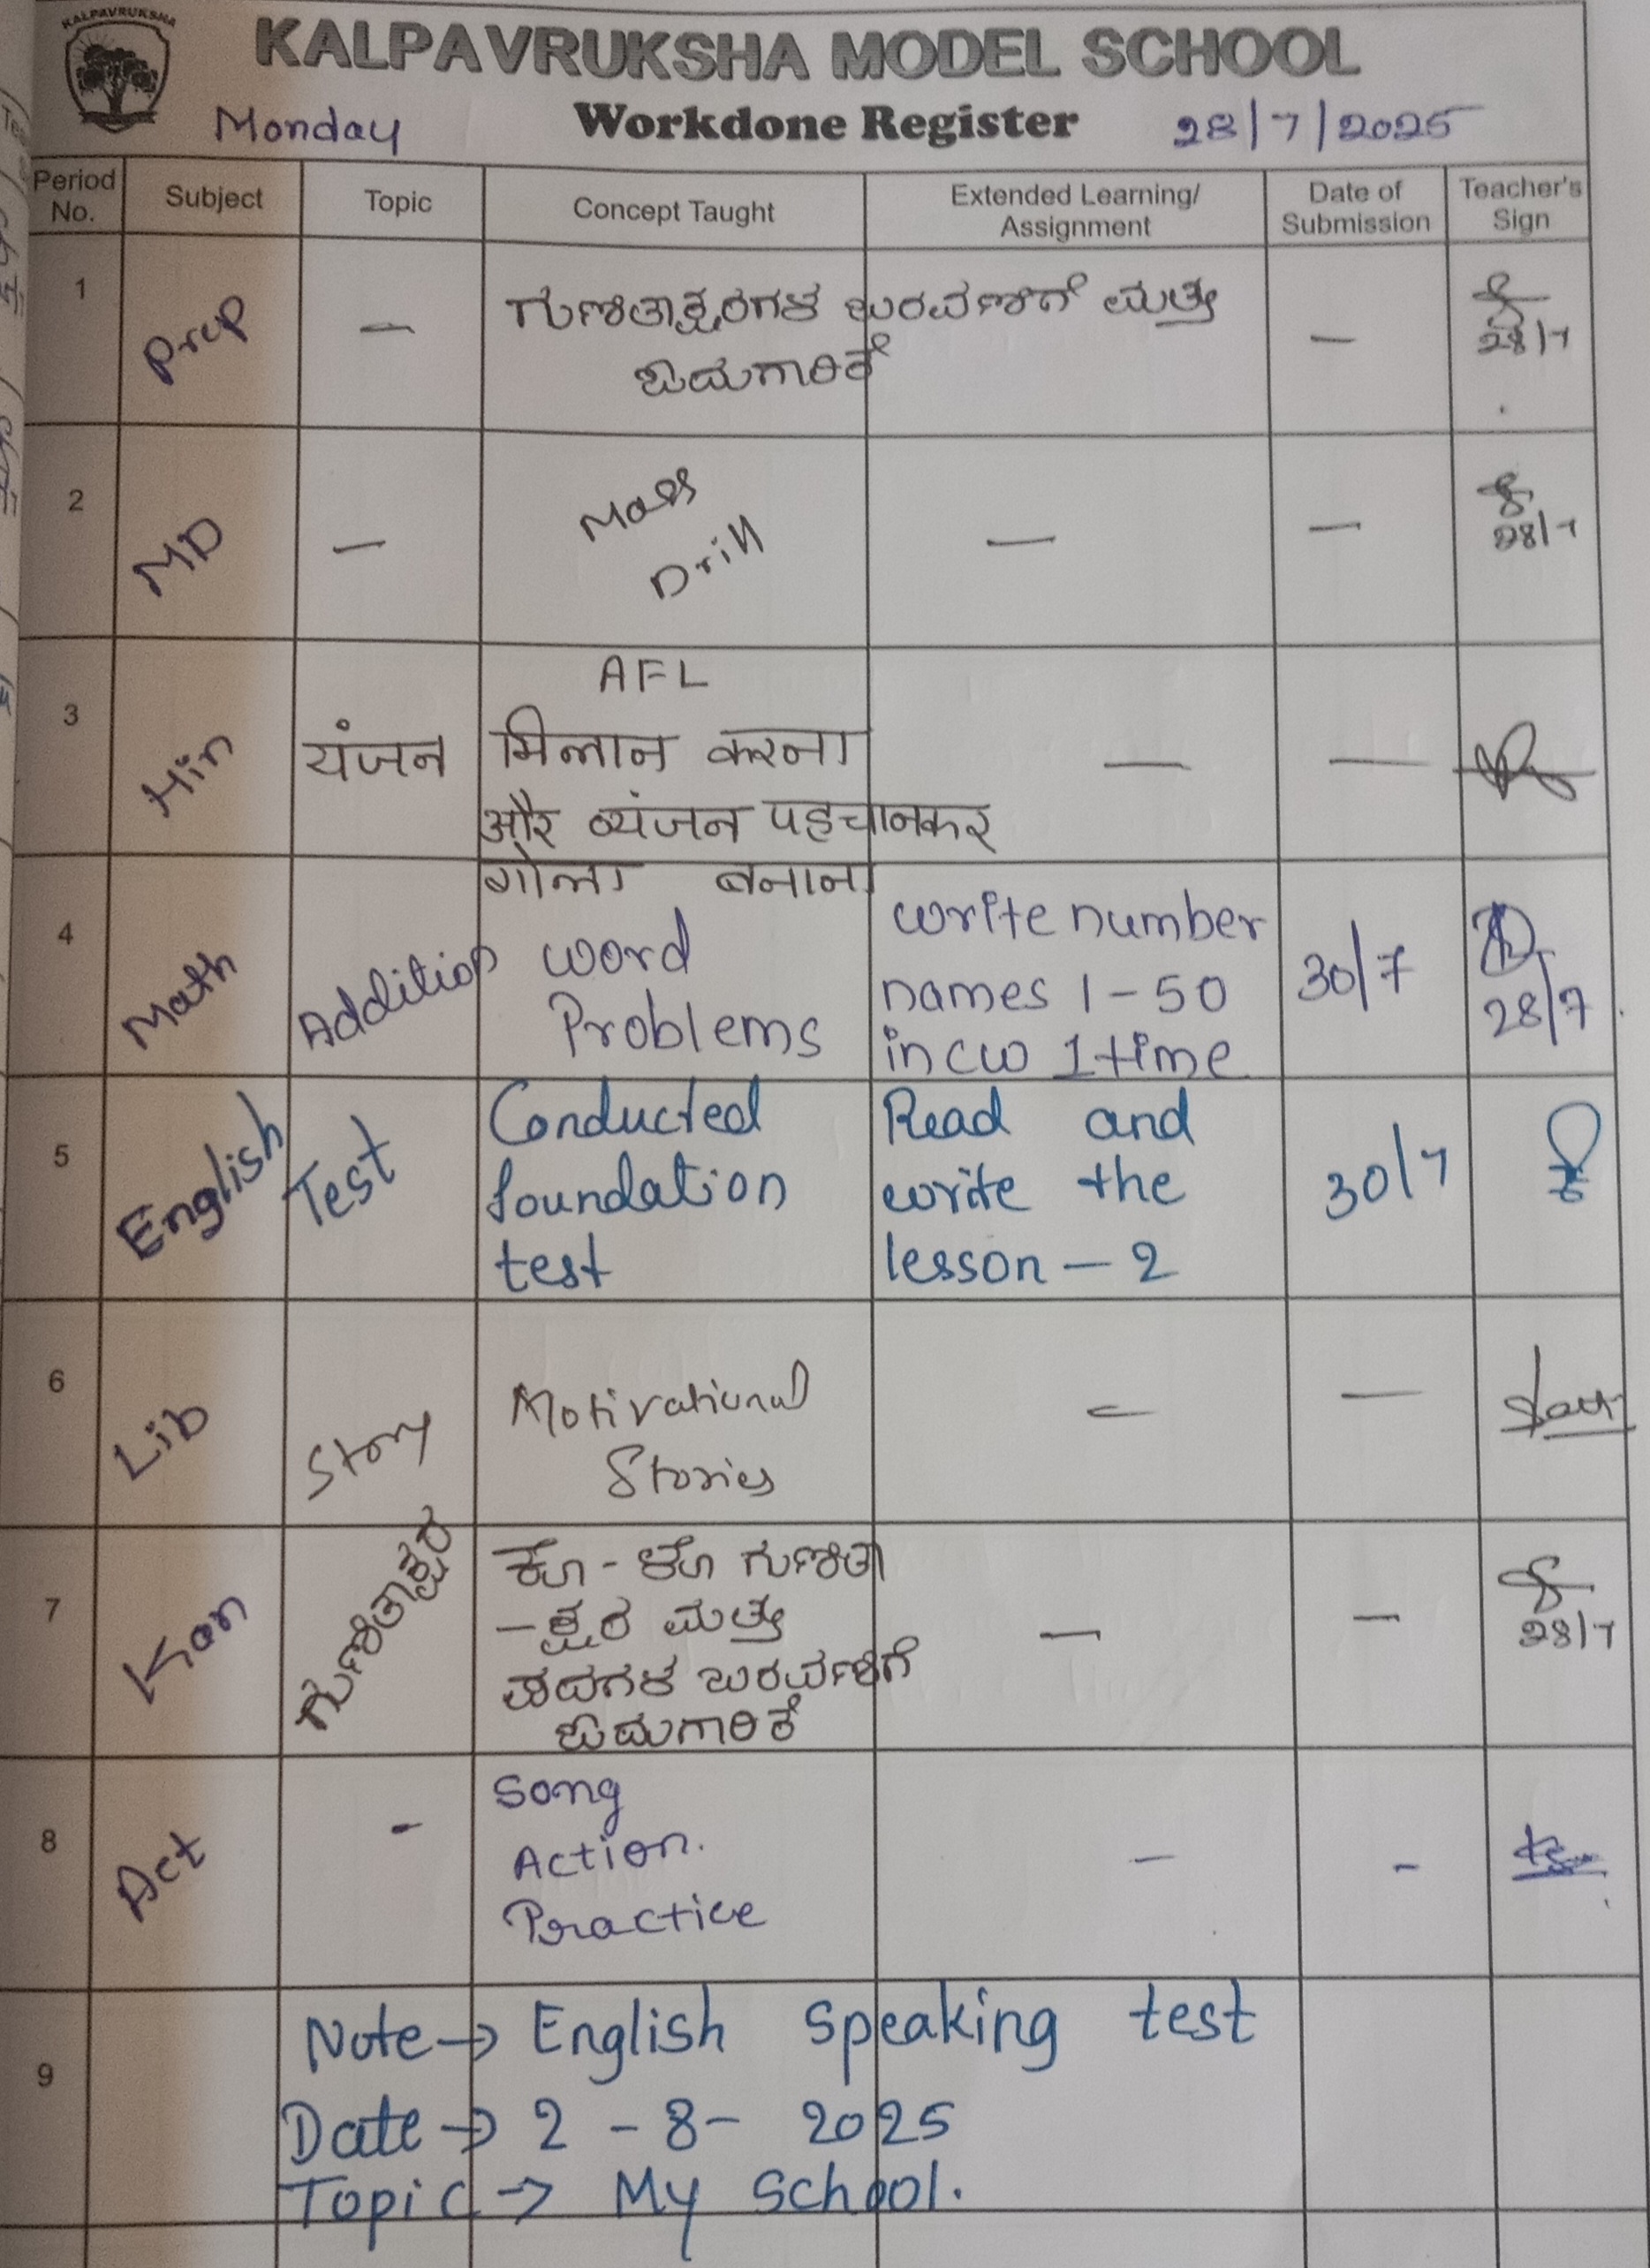 KALPAVRUKSHA
KALPAVRUKSHA MODEL SCHOOL
Monday Workdone Register 28/7/2025
Period No. Subject Topic Concept Taught Extended Learning/ Assignment Date of Submission Teacher's Sign
1 Prep — ಗುಣಿತಾಕ್ಷರಗಳ ಬರವಣಿಗೆ ಮತ್ತು — 28/7
ಓದುಗಾರಿಕೆ
2 MD — Mass — — 28/7
Drill
AFL
3 Hin यंजन मिलान करना — —
और व्यंजन पहचानकर
गोला बनाना
4 Math Addition word Problems write number 30/7 28/7
names 1-50
in cw 1 time
5 English Test Conducted Read and 30/7
foundation write the
test lesson - 2
6 Lib Story Motivational — —
Stories
7 Kan ಗುಣಿತಾಕ್ಷರ ಕೊ - ಳೊ ಗುಣಿತಾ — — 28/7
-ಕ್ಷರ ಮತ್ತು
ಪದಗಳ ಬರವಣಿಗೆ
ಓದುಗಾರಿಕೆ
8 Act - Song — -
Action.
Practice
9 Note → English speaking test
Date → 2 - 8 - 2025
Topic → My School.